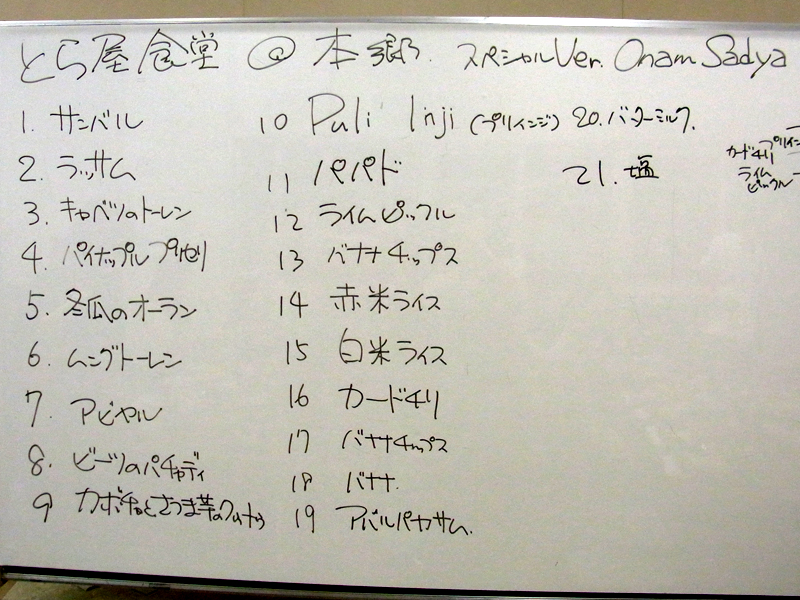 とら屋食堂 @ 本郷. スペシャルVer. Onam Sadya
1. サンバル
2. ラッサム
3. キャベツのトーレン
4. パイナップル プリセリ
5. 冬瓜のオーラン
6. ムングトーレン
7. アビヤル
8. ビーツのパチャディ
9 カボチャとさつま芋の
10 Puli Inji (プリインジ)
11 パパド
12 ライムピックル
13 バナナチップス
14 赤米ライス
15 白米ライス
16 カードチリ
17 バナナチップス
18 バナナ.
19 アバルパヤサム.
20. バターミルク.
21. 塩
プリイン
カードチリ
ライム
ピックル